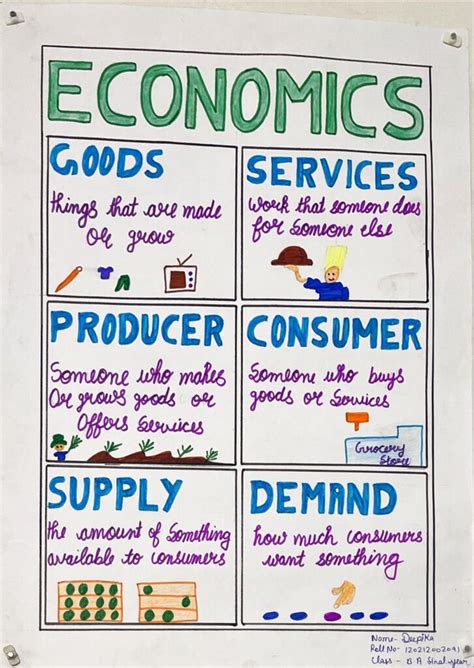 ECONOMICS
GOODS
things that are made
or grow
SERVICES
work that someone does
for someone else
PRODUCER
Someone who makes
Or grows goods or
Offers Services
CONSUMER
Someone who buys
goods or Services
Grocery
Store
SUPPLY
the amount of Something
available to consumers
DEMAND
how much consumers
want something
Name- Deepika
Roll No- 120212002091
Class - B.A final year